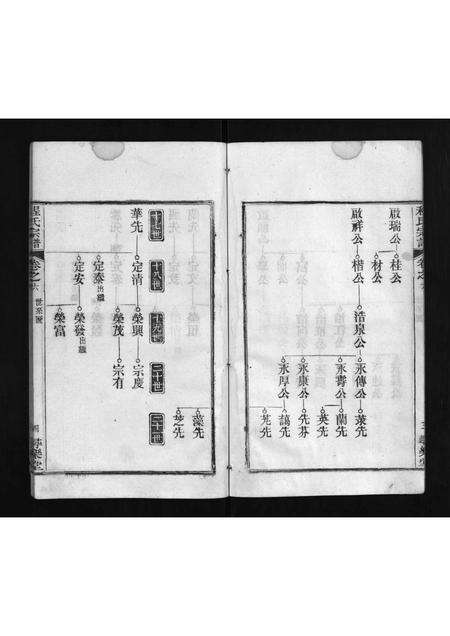 程氏宗譜
卷之六
啟瑞公
桂公
啟祥公
材公
楷公
浩泉公
永傳公
永壽公
永康公
永厚公
萊先
蘭先
英先
先芬
先
芫先
藻先
芝先
十七世
十八世
十九世
二十世
二十一世
華先
定清
榮興
宗慶
榮茂
宗有
定泰出繼
定安
榮發出繼
榮富
程氏宗譜
卷之六
世系圖